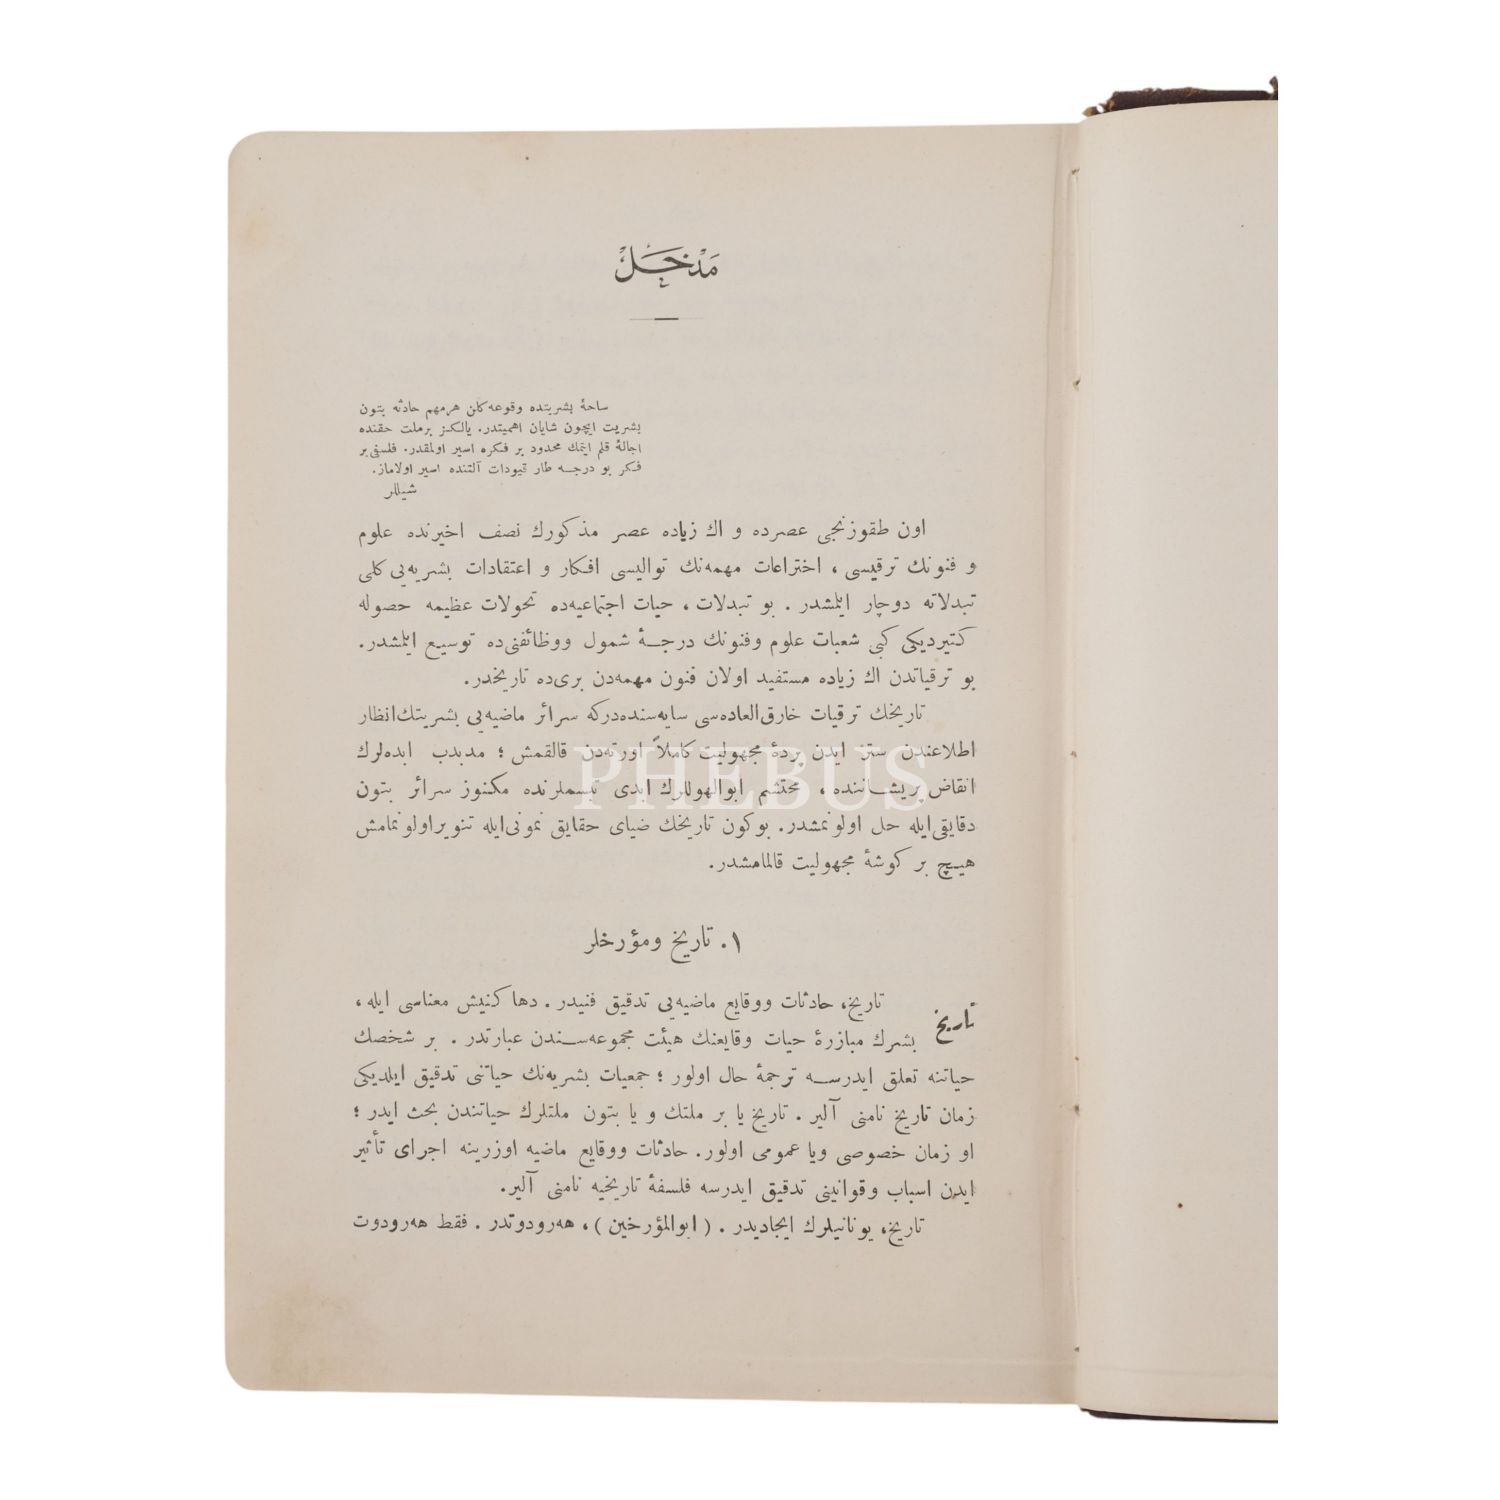 مَدْخَلْ
ساحهٔ بشریتده وقوعه کلن هرمهم حادثه بتون
بشریت ایچون شایان اهمیتدر. یالکز برملت حقنده
اجالهٔ قلم ایتمك محدود بر فکره اسیر اولمقدر. فلسفی بر
فکر بو درجه طار قیودات آلتنده اسیر اولاماز.
شیللر
اون طقوزنجی عصرده و اك زیاده عصر مذکورك نصف اخیرنده علوم
و فنونك ترقیسی ، اختراعات مهمه‌نك توالیسی افکار و اعتقادات بشریه‌یی کلی
تبدلاته دوچار ایلمشدر . بو تبدلات ، حیات اجتماعیه‌ده تحولات عظیمه حصوله
کتیردیکی کبی شعبات علوم وفنونك درجهٔ شمول ووظائفنی‌ده توسیع ایلمشدر.
بو ترقیاتدن اك زیاده مستفید اولان فنون مهمه‌دن بری‌ده تاریخدر.
تاریخك ترقیات خارق‌العاده‌سی سایه‌سنده‌درکه سرائر ماضیه‌یی بشریتك انظار
اطلاعندن ستر ایدن پردهٔ مجهولیت کاملاً اورته‌دن قالقمش ؛ مدبدب ابده‌لرك
انقاض پریشاننده ، محتشم ابوالهوللرك ابدی تبسملرنده مکنوز سرائر بتون
دقایقی‌ایله حل اولونمشدر. بوکون تاریخك ضیای حقایق نمونی‌ایله تنویر اولونمامش
هیچ بر کوشهٔ مجهولیت قالمامشدر.
PHEBUS
۱. تاریخ ومؤرخلر
تاریخ
تاریخ، حادثات ووقایع ماضیه‌یی تدقیق فنیدر . دها کنیش معناسی ایله ،
بشرك مبارزهٔ حیات وقایعنك هیئت مجموعه‌سندن عبارتدر . بر شخصك
حیاتنه تعلق ایدرسه ترجمهٔ حال اولور ؛ جمعیات بشریه‌نك حیاتنی تدقیق ایلدیکی
زمان تاریخ نامنی آلیر . تاریخ یا بر ملتك و یا بتون ملتلرك حیاتندن بحث ایدر ؛
او زمان خصوصی ویا عمومی اولور. حادثات ووقایع ماضیه اوزرینه اجرای تأثیر
ایدن اسباب وقوانینی تدقیق ایدرسه فلسفهٔ تاریخیه نامنی آلیر.
تاریخ، یونانیلرك ایجادیدر . ( ابوالمؤرخین ) ، هه‌رودوتدر . فقط هه‌رودوت